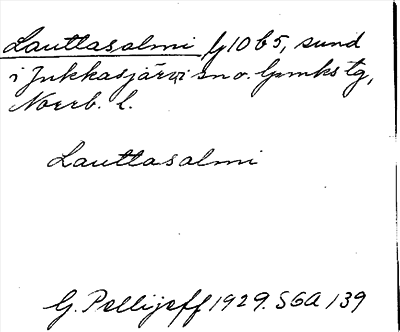 Lauttasalmi G10b5, sund
i Jukkasjärvi sn o. lpmks tg,
Norrb. l.
Lauttasalmi
G. Pellijeff 1929. SGA 139